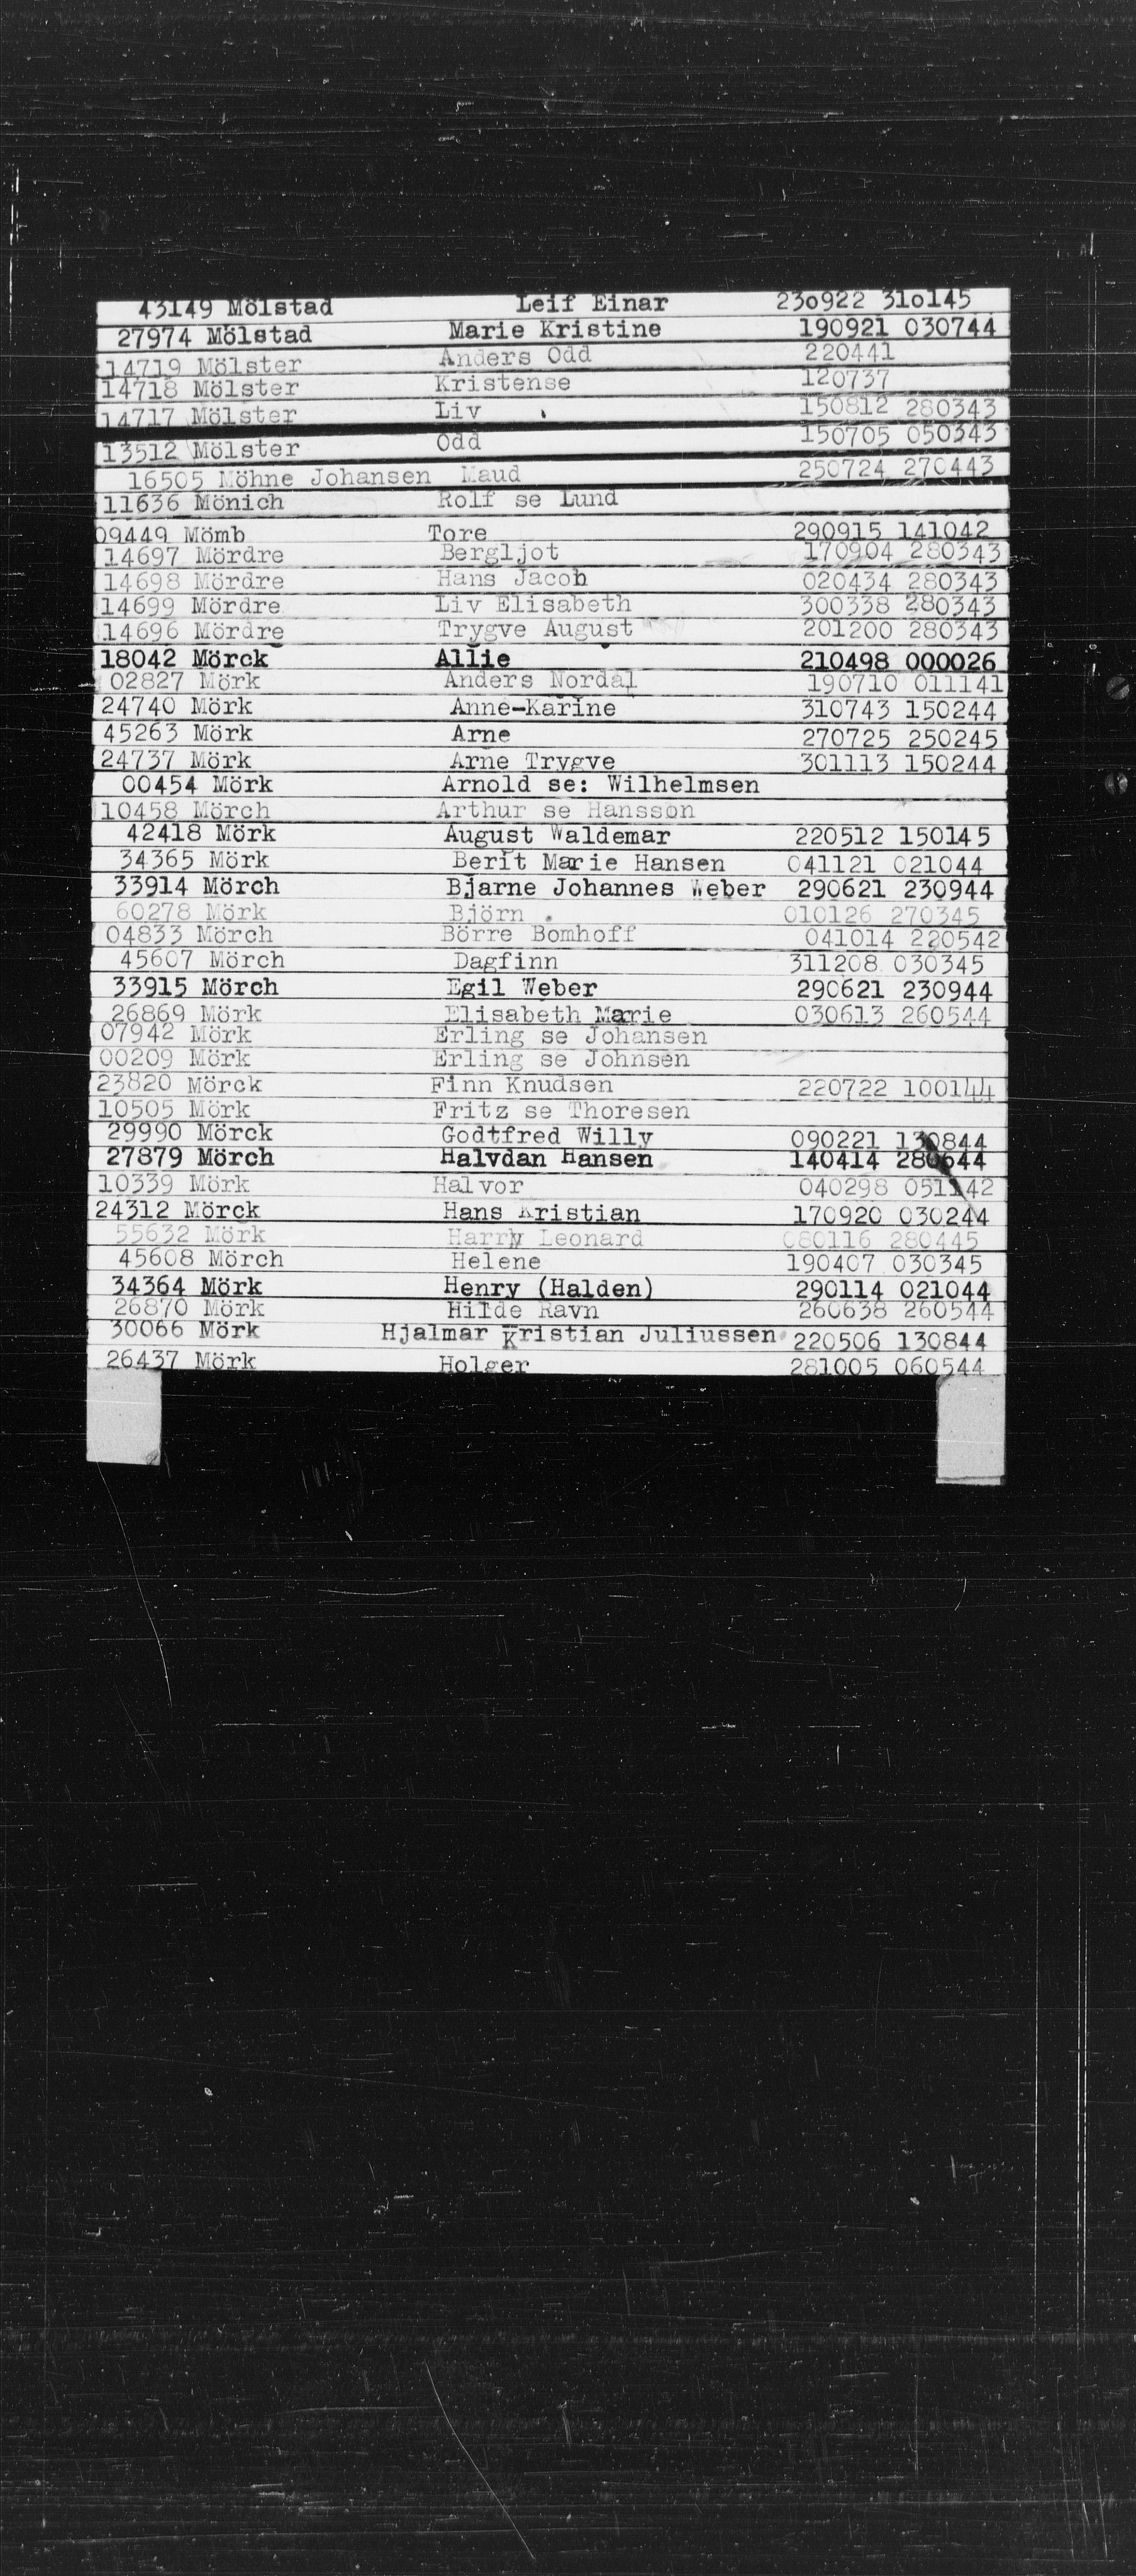 43149 Mölstad Leif Einar 230922 310145
27974 Mölstad Marie Kristine 190921 030744
14719 Mölster Anders Odd 220441
14718 Mölster Kristense 120737
14717 Mölster Liv 150812 280343
13512 Mölster Odd 150705 050343
16505 Möhne Johansen Maud 250724 270443
11636 Mönich Rolf se Lund
09449 Mömb Tore 290915 141042
14697 Mördre Bergljot 170904 280343
14698 Mördre Hans Jacob 020434 280343
14699 Mördre Liv Elisabeth 300338 280343
14696 Mördre Trygve August 201200 280343
18042 Mörck Allie 210498 000026
02827 Mörk Anders Nordal 190710 011141
24740 Mörk Anne-Karine 310743 150244
45263 Mörk Arne 270725 250245
24737 Mörk Arne Trygve 301113 150244
00454 Mörk Arnold se: Wilhelmsen
10458 Mörch Arthur se Hansson
42418 Mörk August Waldemar 220512 150145
34365 Mörk Berit Marie Hansen 041121 021044
33914 Mörch Bjarne Johannes Weber 290621 230944
60278 Mörk Björn . 010126 270345
04833 Mörch Börre Bomhoff 041014 220542
45607 Mörch Dagfinn 311208 030345
33915 Mörch Egil Weber 290621 230944
26869 Mörk Elisabeth Marie 030613 260544
07942 Mörk Erling se Johansen
00209 Mörk Erling se Johnsen
23820 Mörck Finn Knudsen 220722 100144
10505 Mörk Fritz se Thoresen
29990 Mörck Godtfred Willy 090221 130844
27879 Mörch Halvdan Hansen 140414 280644
10339 Mörk Halvor 040298 051142
24312 Mörck Hans Kristian 170920 030244
55632 Mörk Harry Leonard 080116 280445
45608 Mörch Helene 190407 030345
34364 Mörk Henry (Halden) 290114 021044
26870 Mörk Hilde Ravn 260638 260544
30066 Mörk Hjalmar Kristian Juliussen 220506 130844
26437 Mörk Holger 281005 060544